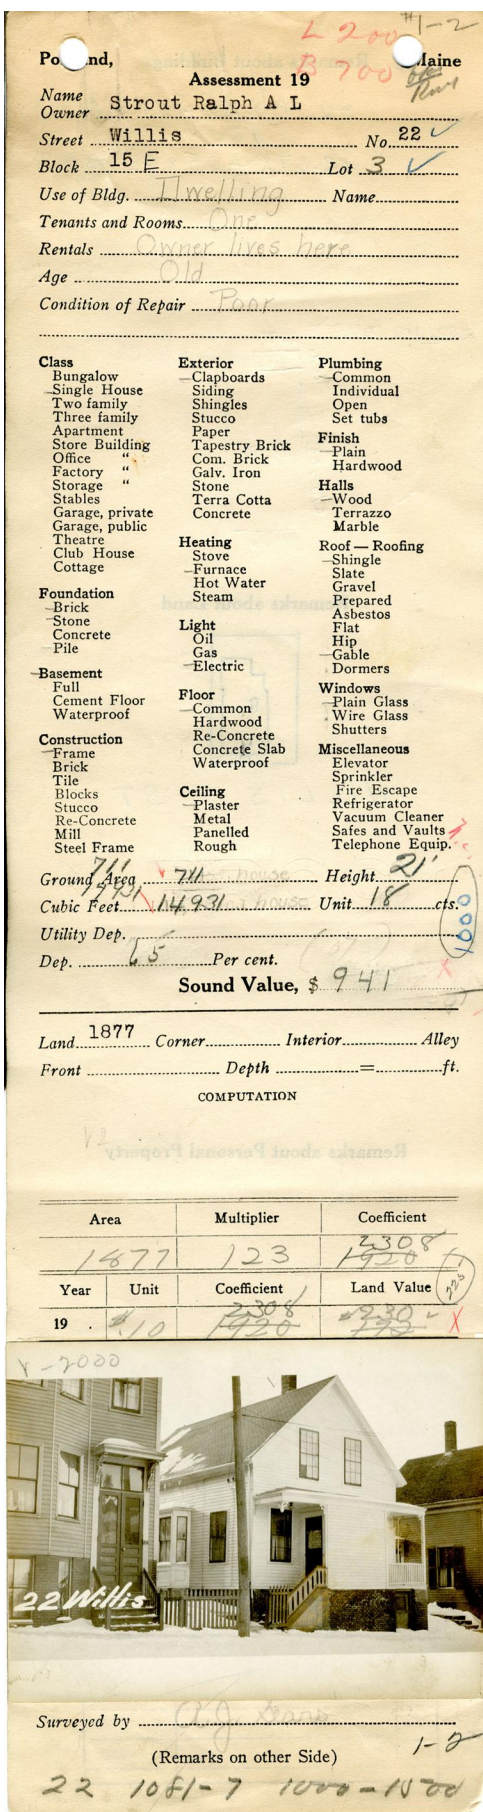 #1-2
L 200
B 700
Portland, Maine
Assessment 19
Name
Owner Strout Ralph A L
Street Willis No. 22 ✓
Block 15 E Lot 3 ✓
Use of Bldg. Dwelling Name
Tenants and Rooms One
Rentals Owner lives here
Age Old
Condition of Repair Poor
Class
Bungalow
Single House
Two family
Three family
Apartment
Store Building
Office "
Factory "
Storage "
Stables
Garage, private
Garage, public
Theatre
Club House
Cottage
Foundation
Brick
Stone
Concrete
Pile
Basement
Full
Cement Floor
Waterproof
Construction
Frame
Brick
Tile
Blocks
Stucco
Re-Concrete
Mill
Steel Frame
Exterior
Clapboards
Siding
Shingles
Stucco
Paper
Tapestry Brick
Com. Brick
Galv. Iron
Stone
Terra Cotta
Concrete
Heating
Stove
Furnace
Hot Water
Steam
Light
Oil
Gas
Electric
Floor
Common
Hardwood
Re-Concrete
Concrete Slab
Waterproof
Ceiling
Plaster
Metal
Panelled
Rough
Plumbing
Common
Individual
Open
Set tubs
Finish
Plain
Hardwood
Halls
Wood
Terrazzo
Marble
Roof — Roofing
Shingle
Slate
Gravel
Prepared
Asbestos
Flat
Hip
Gable
Dormers
Windows
Plain Glass
Wire Glass
Shutters
Miscellaneous
Elevator
Sprinkler
Fire Escape
Refrigerator
Vacuum Cleaner
Safes and Vaults
Telephone Equip.
711
Ground Area 711 house Height 21'
14931
Cubic Feet 14931 house Unit 18 cts.
1000
Utility Dep.
Dep. 65 Per cent.
Sound Value, $ 941
Land 1877 Corner Interior Alley
Front Depth = ft.
COMPUTATION
Remarks about Personal Property
Area Multiplier Coefficient
2308
1877 123 1920
Year Unit Coefficient Land Value
225
2308 230
19 . $.10 1920 192 X
V-2000
22 Willis
Surveyed by
(Remarks on other Side)
1-2
22 1081-7 1000-1500